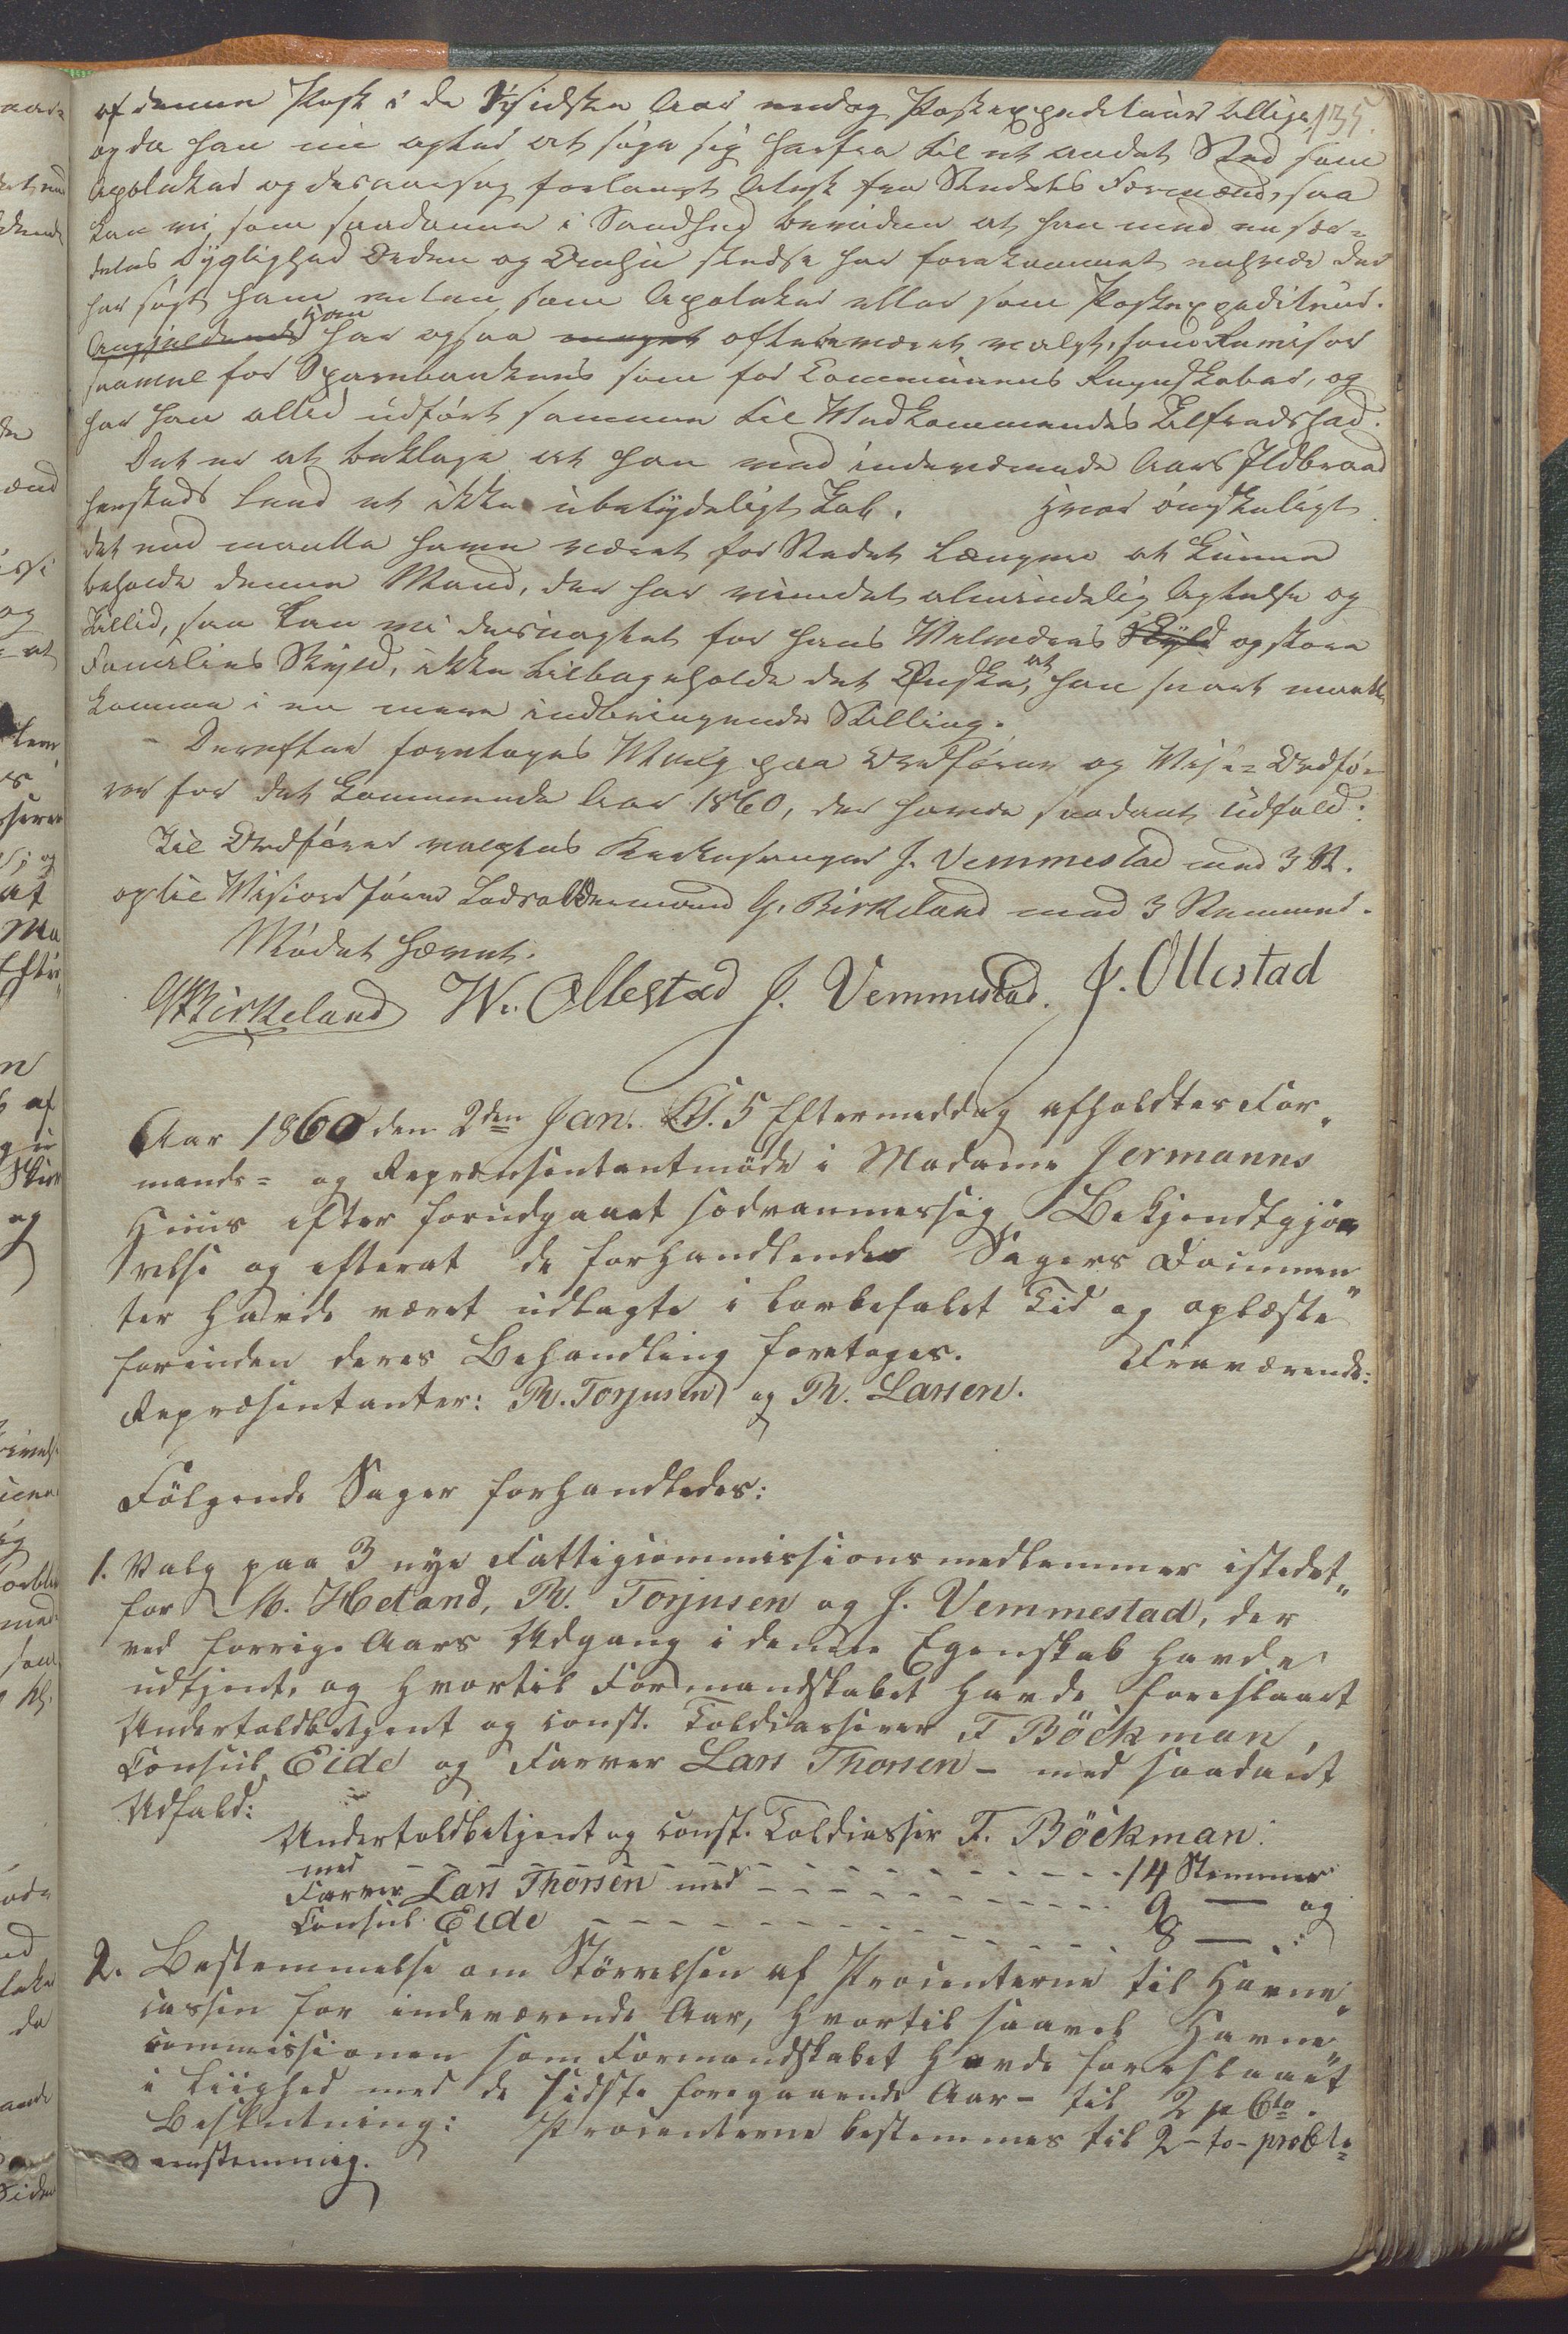 135.
af denne Post i de 7 sidste Aar endog Postexpediteur tillige,
og da han nu agter at søge sig herfra til et andet Sted som
Apotheker og desaarsag forlangt Attest fra Stedets Formænd, saa
kan vi som saadanne i Sandhed bevidne at han med en sær-
deles Dygtighed Orden og Omhu stedse har forekommet enhver der
har søgt ham enten som Apotheker eller som Postexpediteur.
Angjældende han har ogsaa meget oftere været valgt som Revisor
saavel for Sparebankens som for Communens Regnskaber, og
har han altid udført samme til Vedkommendes Tilfredshed.
Det er at beklage at han ved indeværende Aars Ildbrand
hersteds leed et ikke ubetydeligt Tab. Hvor ønskeligt
det end maatte have været for Stedet længere at kunne
beholde denne Mand, der har vundet almindelig Agtelse og
Tillid, saa kan vi desuagtet for hans Velfærds Skyld og store
Families Skyld, ikke tilbageholde det Ønske, at han snart maatte
komme i en mere indbringende Stilling.
- Derefter foretoges Valg paa Ordfører og Vise-Ordfø-
rer for det kommende Aar 1860, der havde saadant Udfald:
Til Ordfører valgtes Kirkesanger J. Vemmestad med 3 St.
og til Viseordfører Lodsoldermand G. Birkeland med 3 Stemmer.
Mødet hævet.
G Birkeland W. Ollestad J. Vemmestad. J. Ollestad
Aar 1860 den 2den Jan. Kl. 5 Eftermiddag afholdtes For„
mands- og Repræsentantmøde i Madame Jermanns
Huus efter forudgaaet sædvanmessig Bekjendtgjø„
relse og efterat de forhandlende Sagers Documen„
ter havde været udlagte i lovbefalet Tid og oplæste
forinden deres Behandling foretoges. Fraværende:
Repræsentanter: Th. Torjusen og Th. Larsen.
Følgende Sager forhandledes:
1. Valg paa 3 nye Fattigcommissionsmedlemmer istedet„
for M. Hetland, Th. Torjusen og J. Vemmestad, der
ved forrige Aars Udgang i denne Egenskab havde
udtjent, og hvortil Formandskabet havde foreslaaet
Undertoldbetjent og const. Toldcasserer F Böckman,
Consul Eide og Farver Lars Thorsen - med saadant
Udfald:
Undertoldbetjent og const. Toldcasser F. Böckman
med - - - - - - - - - - - - 14 Stemmer
Farver Lars Thorsen med - - - - - - - - - 9 — og
Consul Eide - - - - - - - - - - - - 8 — .
2. Bestemmelse om Størrelsen af Procenterne til Havne„
cassen for indeværende Aar, hvortil saavel Havne„
commissionen som Formandskabet havde foreslaaet
i Liighed med de sidste foregaaende Aar - til 2 p Cto.
Beslutning: Procenterne bestemmes til 2 - to - pro Cto
eenstemmig.